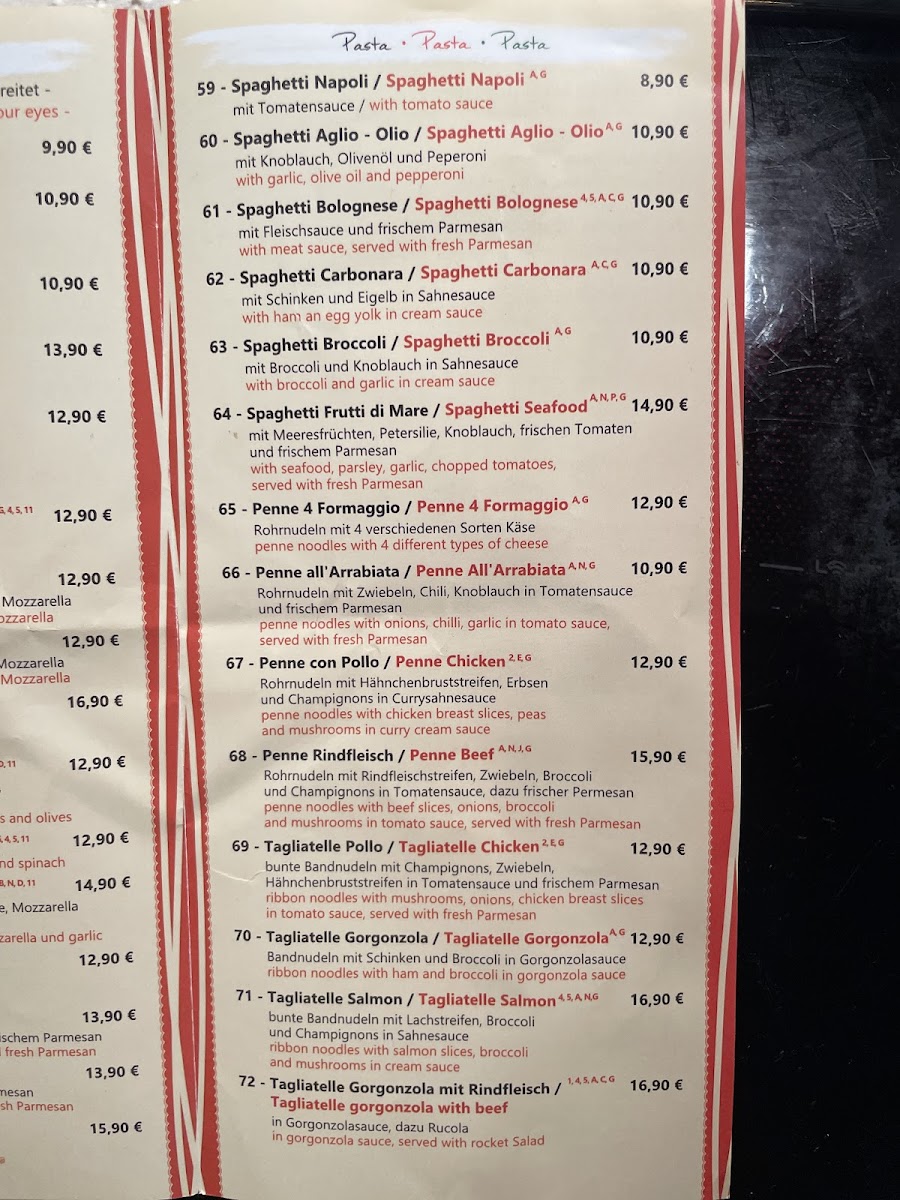 reitet -
our eyes -
9,90 €
10,90 €
10,90 €
13,90 €
12,90 €
4, 5, 11 12,90 €
12,90 €
Mozzarella
ozzarella
12,90 €
Mozzarella
Mozzarella
16,90 €
D, 11 12,90 €
s and olives
4, 5, 11 12,90 €
nd spinach
B, N, D, 11 14,90 €
e, Mozzarella
zarella und garlic
12,90 €
13,90 €
ischem Parmesan
fresh Parmesan
13,90 €
mesan
sh Parmesan
15,90 €
Pasta • Pasta • Pasta
59 - Spaghetti Napoli / Spaghetti Napoli A, G 8,90 €
mit Tomatensauce / with tomato sauce
60 - Spaghetti Aglio - Olio / Spaghetti Aglio - Olio A, G 10,90 €
mit Knoblauch, Olivenöl und Peperoni
with garlic, olive oil and pepperoni
61 - Spaghetti Bolognese / Spaghetti Bolognese 4, 5, A, C, G 10,90 €
mit Fleischsauce und frischem Parmesan
with meat sauce, served with fresh Parmesan
62 - Spaghetti Carbonara / Spaghetti Carbonara A, C, G 10,90 €
mit Schinken und Eigelb in Sahnesauce
with ham an egg yolk in cream sauce
63 - Spaghetti Broccoli / Spaghetti Broccoli A, G 10,90 €
mit Broccoli und Knoblauch in Sahnesauce
with broccoli and garlic in cream sauce
64 - Spaghetti Frutti di Mare / Spaghetti Seafood A, N, P, G 14,90 €
mit Meeresfrüchten, Petersilie, Knoblauch, frischen Tomaten
und frischem Parmesan
with seafood, parsley, garlic, chopped tomatoes,
served with fresh Parmesan
65 - Penne 4 Formaggio / Penne 4 Formaggio A, G 12,90 €
Rohrnudeln mit 4 verschiedenen Sorten Käse
penne noodles with 4 different types of cheese
66 - Penne all'Arrabiata / Penne All'Arrabiata A, N, G 10,90 €
Rohrnudeln mit Zwiebeln, Chili, Knoblauch in Tomatensauce
und frischem Parmesan
penne noodles with onions, chilli, garlic in tomato sauce,
served with fresh Parmesan
67 - Penne con Pollo / Penne Chicken 2, E, G 12,90 €
Rohrnudeln mit Hähnchenbruststreifen, Erbsen
und Champignons in Currysahnesauce
penne noodles with chicken breast slices, peas
and mushrooms in curry cream sauce
68 - Penne Rindfleisch / Penne Beef A, N, J, G 15,90 €
Rohrnudeln mit Rindfleischstreifen, Zwiebeln, Broccoli
und Champignons in Tomatensauce, dazu frischer Permesan
penne noodles with beef slices, onions, broccoli
and mushrooms in tomato sauce, served with fresh Parmesan
69 - Tagliatelle Pollo / Tagliatelle Chicken 2, E, G 12,90 €
bunte Bandnudeln mit Champignons, Zwiebeln,
Hähnchenbruststreifen in Tomatensauce und frischem Parmesan
ribbon noodles with mushrooms, onions, chicken breast slices
in tomato sauce, served with fresh Parmesan
70 - Tagliatelle Gorgonzola / Tagliatelle Gorgonzola A, G 12,90 €
Bandnudeln mit Schinken und Broccoli in Gorgonzolasauce
ribbon noodles with ham and broccoli in gorgonzola sauce
71 - Tagliatelle Salmon / Tagliatelle Salmon 4, 5, A, N, G 16,90 €
bunte Bandnudeln mit Lachstreifen, Broccoli
und Champignons in Sahnesauce
ribbon noodles with salmon slices, broccoli
and mushrooms in cream sauce
72 - Tagliatelle Gorgonzola mit Rindfleisch / 1, 4, 5, A, C, G 16,90 €
Tagliatelle gorgonzola with beef
in Gorgonzolasauce, dazu Rucola
in gorgonzola sauce, served with rocket Salad